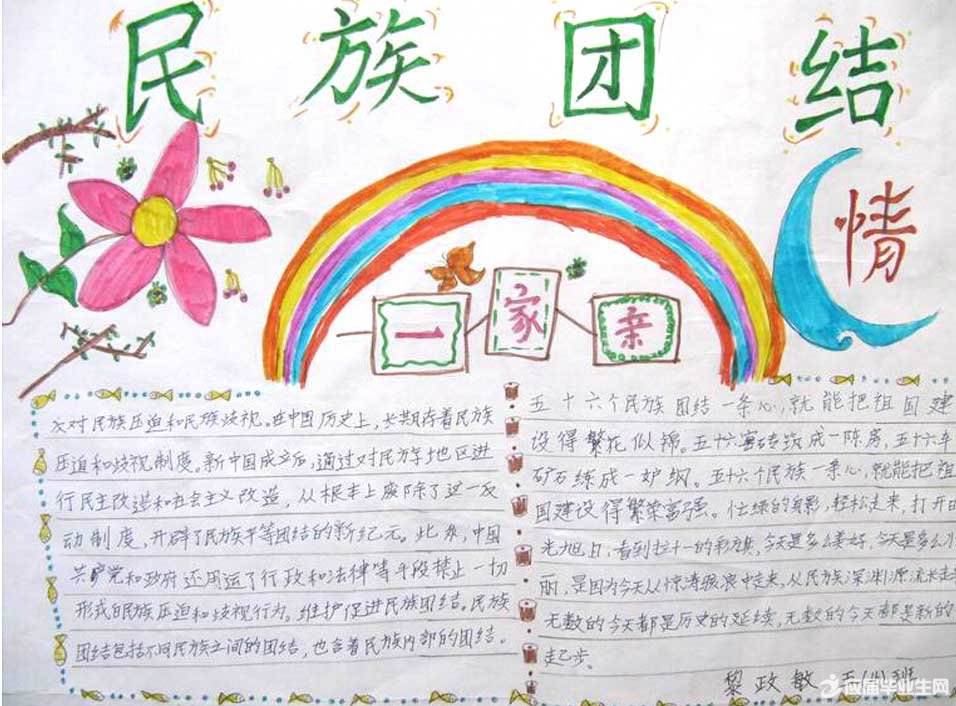 民族团结
情
一家亲
反对民族压迫和民族歧视。在中国历史上，长期存着民族
压迫和歧视制度。新中国成立后，通过对民族地区进
行民主改造和社会主义改造，从根本上废除了这一反
动制度，开辟了民族平等团结的新纪元。此外，中国
共产党和政府还用运了行政和法律等手段禁止一切
形式的民族压迫和歧视行为。维护促进民族团结。民族
团结包括不同民族之间的团结，也含着民族内部的团结。
五十六个民族团结一条心，就能把祖国建
设得繁花似锦。五十六砖筑成一陈房，五十六车
矿石练成一炉钢。五十六个民族一条心，就能把祖
国建设得繁荣富强。忙绿的身影，轻松走来，打开
光旭日，看到拉十一的彩旗，今天是多么美好，今天是多么
丽，是因为今天从惊涛骇浪中走来，从民族深渊源流长走
无数的今天都是历史的延续，无数的今天都是新的
起步。
黎政敏 五(4)班
应届毕业生网